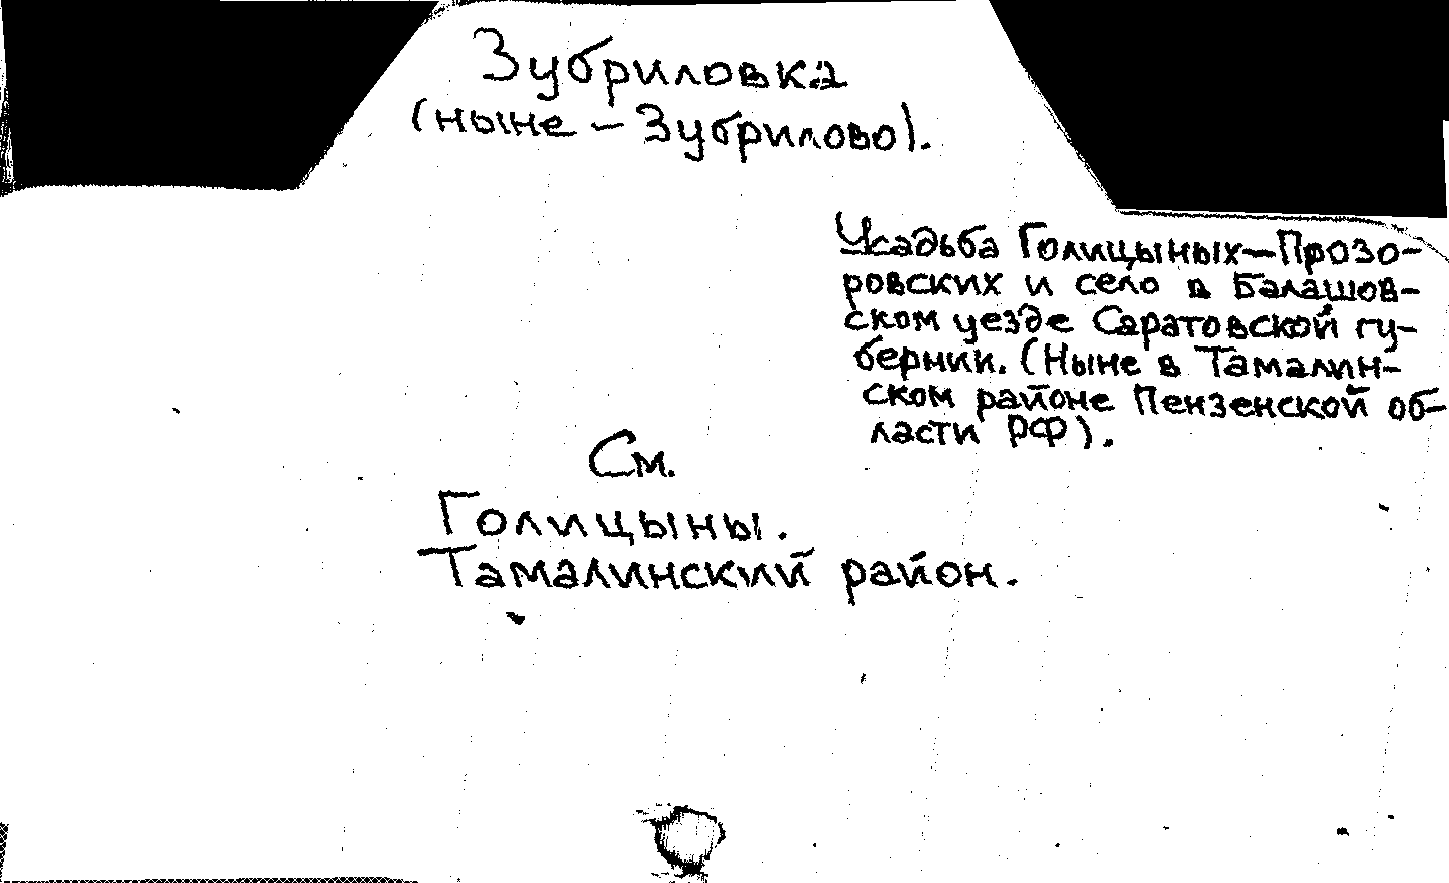 Зубриловка
(ныне – Зубрилово).
Усадьба Голицыных—Прозо-
ровских и село в Балашов-
ском уезде Саратовской гу-
бернии. (Ныне в Тамалин-
ском районе Пензенской об-
ласти РФ).
См.
Голицыны.
Тамалинский район.